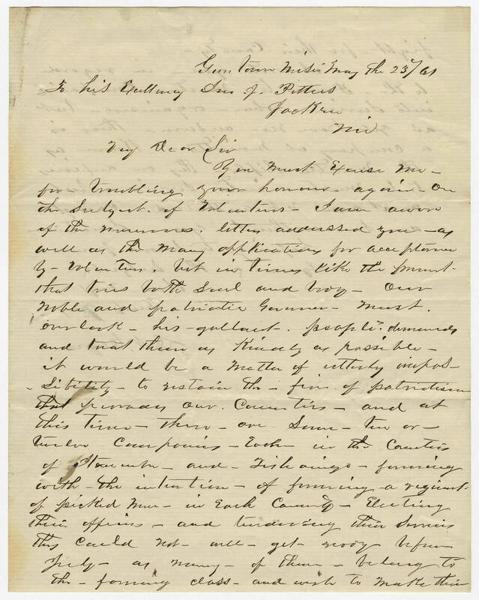 Guntown Missi May the 23rd/61
To his Exellency Jno J. Pettus
Jackson
Miss
Very Dear Sir
You Must Excuse Me
for troubling your honour again on
the Subject of Volunteers - I am aware
of the numerous letters addressed you - as
well as the Many applications for acceptance
by - Volunteers. but in times like the present
that tries both Soul and body - Our
Noble and patriotic Governor - Must
overlook - his - gallant people's demands
and treat them as Kindly as possible -
it would be a Matter of utterly impos-
sibility - to restrain the - fire of patriotism
that pervades our Counties - and at
this time - there - are Some - ten or -
twelve Companies - Each - in the Counties
of Itawamba - and - Tishomingo - forming
with - the intention - of forming a regiment
of picked Men - in Each County - Electing
their officers - and tendering their Services
this could not - well - get ready before
July - as many - of them - belong to
the - farming class - and wish to Make their